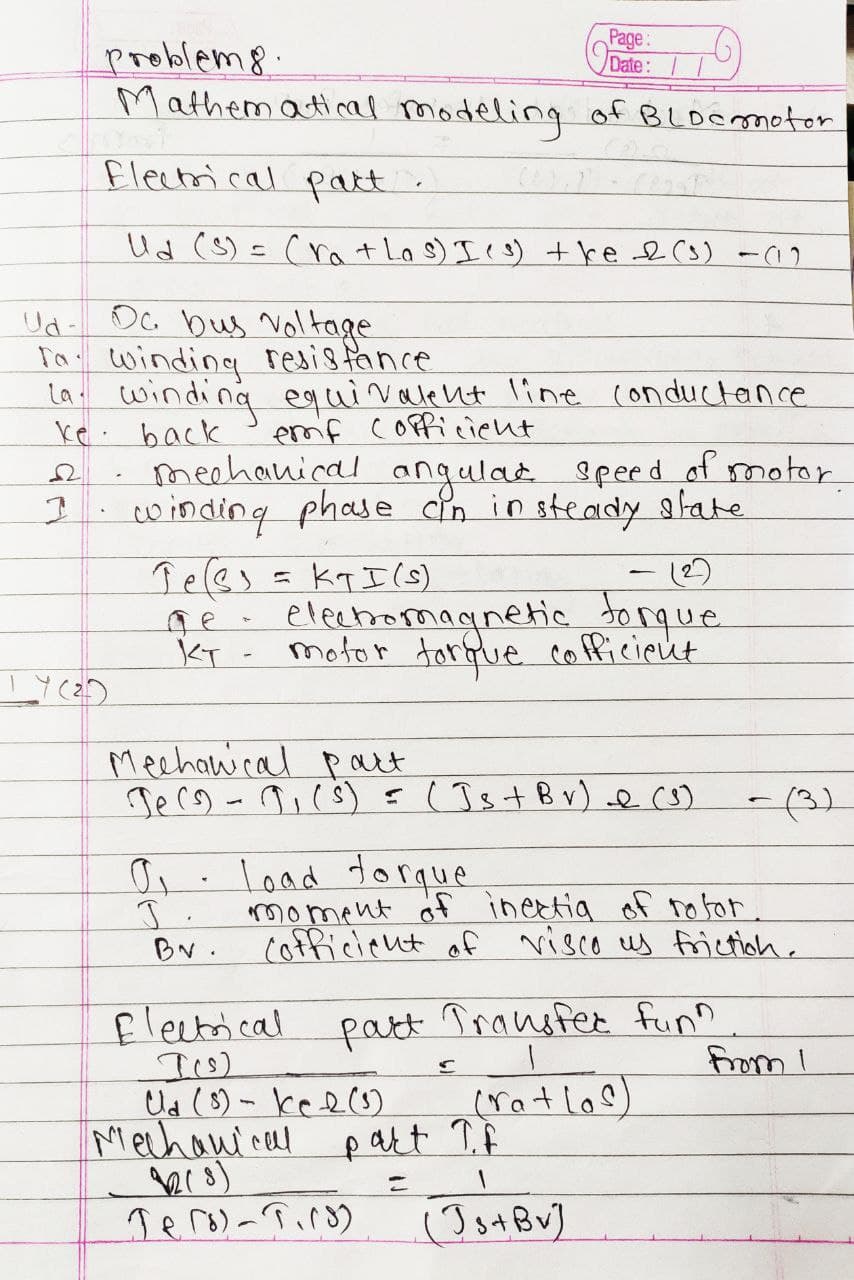 Page:
Date: / /
problem 8.
Mathematical modeling of BLDC motor
Electrical part.
Ud (s) = (ra + La s) I(s) + ke Ω(s) -(1)
Ud - DC bus voltage
ra. winding resistance
La. winding equivalent line conductance
ke. back emf cofficient
Ω. mechanical angular speed of motor
I. winding phase c/n in steady state
Te(s) = KT I(s) - (2)
Te - electromagnetic torque
KT - motor torque cofficient
Mechanical part
Te(s) - T1(s) = (Js + Bv) Ω(s) - (3)
T1. load torque
J. moment of inertia of rotor.
Bv. cofficient of viscous friction.
Electrical part Transfer funn.
I(s) / Ud(s) - ke Ω(s) = 1 / (ra + Las) from 1
Mechanical part T.f
Ω(s) / Te(s) - T1(s) = 1 / (Js + Bv)